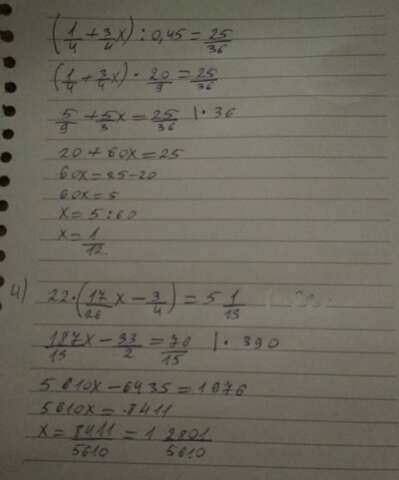 (1/4 + 3/4 x) : 0,45 = 25/36
(1/4 + 3/4 x) · 20/9 = 25/36
5/9 + 5/3 x = 25/36 |· 36
20 + 60x = 25
60x = 25 - 20
60x = 5
x = 5 : 60
x = 1/12
4) 22 · (17/26 x - 3/4) = 5 1/13
187x/13 - 33/2 = 76/15 |· 390
5 610x - 6435 = 1976
5610x = 8411
x = 8411/5610 = 1 2801/5610